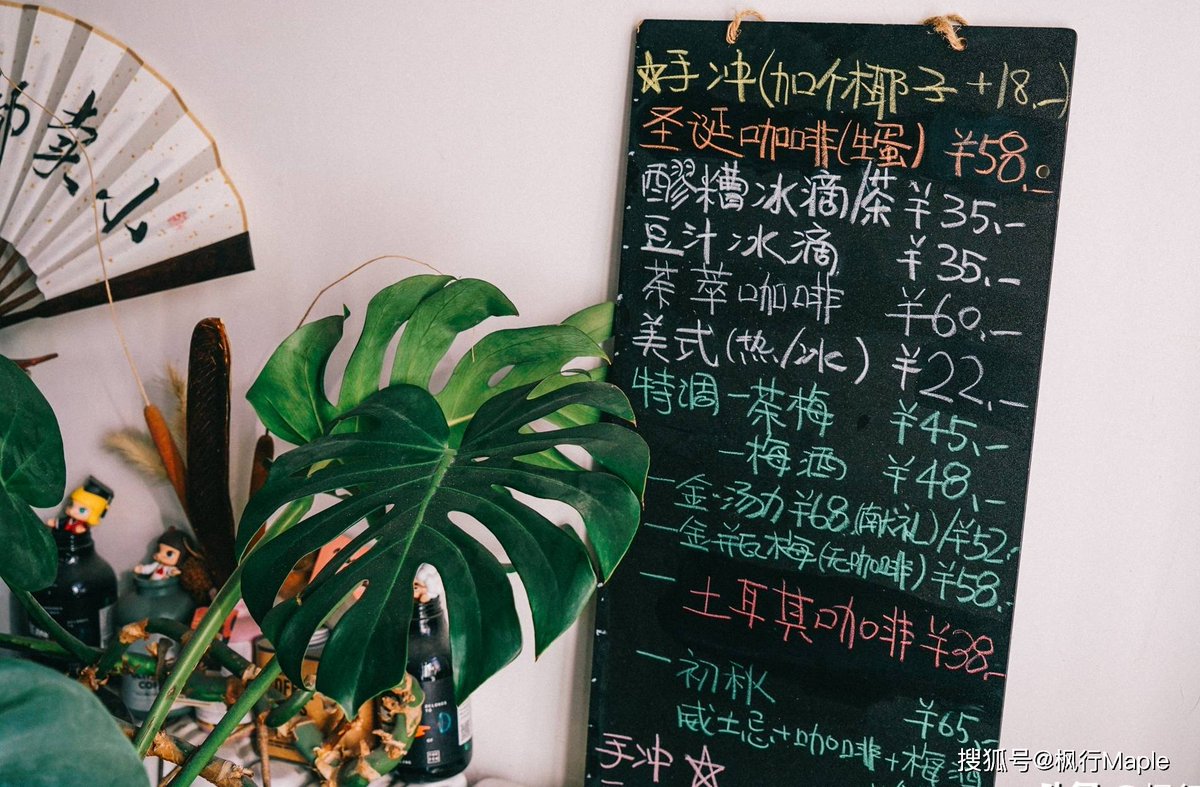 ☆手冲(加个椰子+18.-)
圣诞咖啡(生蛋) ¥58.-
醪糟冰滴/茶 ¥35.-
豆汁冰滴 ¥35.-
茶萃咖啡 ¥60.-
美式(热/冰) ¥22.-
特调-茶梅 ¥45.-
-梅酒 ¥48.-
-金·汤力 ¥68./¥52.
-金瓶梅(无咖啡) ¥58.-
-土耳其咖啡 ¥38.-
-初秋 ¥65.
威士忌+咖啡+梅酒
手冲☆
搜狐号@枫行Maple